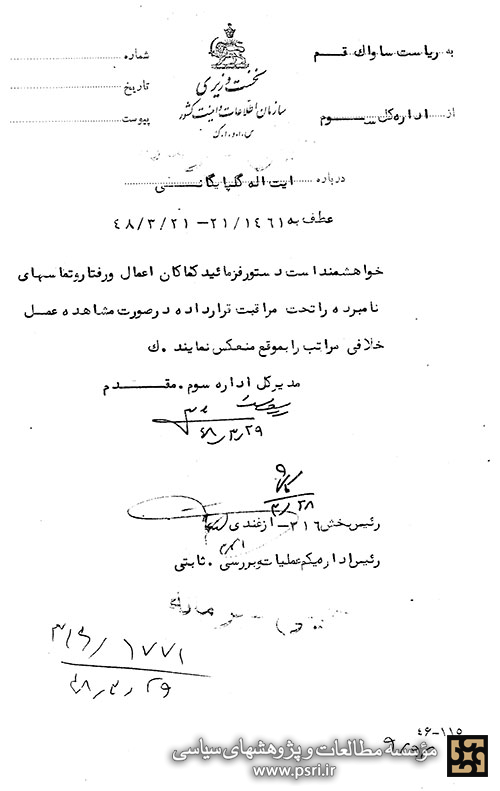 به ریاست ساواک قم
شماره
نخست وزیری
تاریخ
سازمان اطلاعات و امنیت کشور
از اداره کل سوم
پیوست
س.ا.و.ا.ک
درباره آیت اله گلپایگانی
عطف به ۲۱/۱۴۶۱ – ۴۸/۳/۲۱
خواهشمند است دستور فرمائید کماکان اعمال و رفتار و تماسهای
نامبرده را تحت مراقبت قرار داده در صورت مشاهده عمل
خلافی مراتب را بموقع منعکس نمایند. ک
مدیر کل اداره سوم. مقدم
۴۸/۳/۲۹
۳/۲۸
رئیس بخش ۳۱۶ – ازغندی
رئیس اداره یکم عملیات و بررسی. ثابتی
۳۱۶/۱۷۷۱
۴۸/۳/۲۹
۴۶-۱۱۵
مؤسسه مطالعات و پژوهشهای سیاسی
www.psri.ir